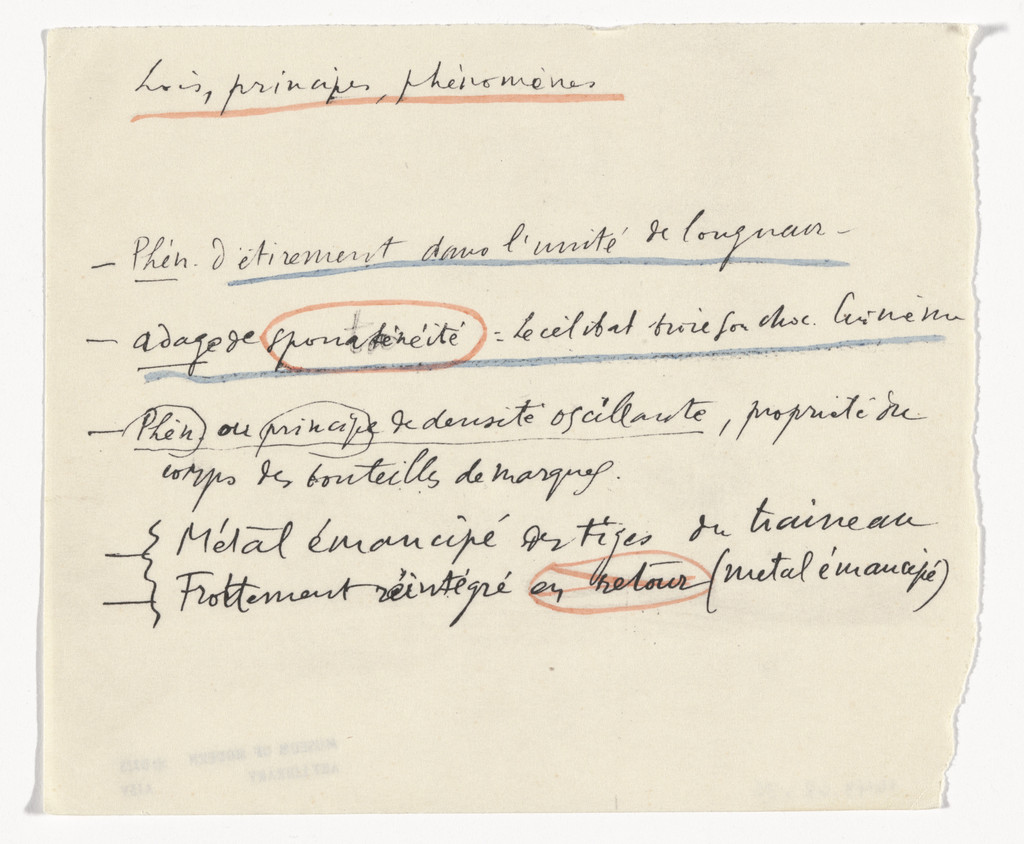 Lois, principes, phénomènes
— Phén. d'étirement dans l'unité de longueur –
— adage de spontanéité = Le célibat broie son choc. lui-même
— Phén. ou principe de densité oscillante, propriété du
corps des bouteilles de marques.
— { Métal émancipé des tiges du traineau
— { Frottement réintégré en retour (métal émancipé)